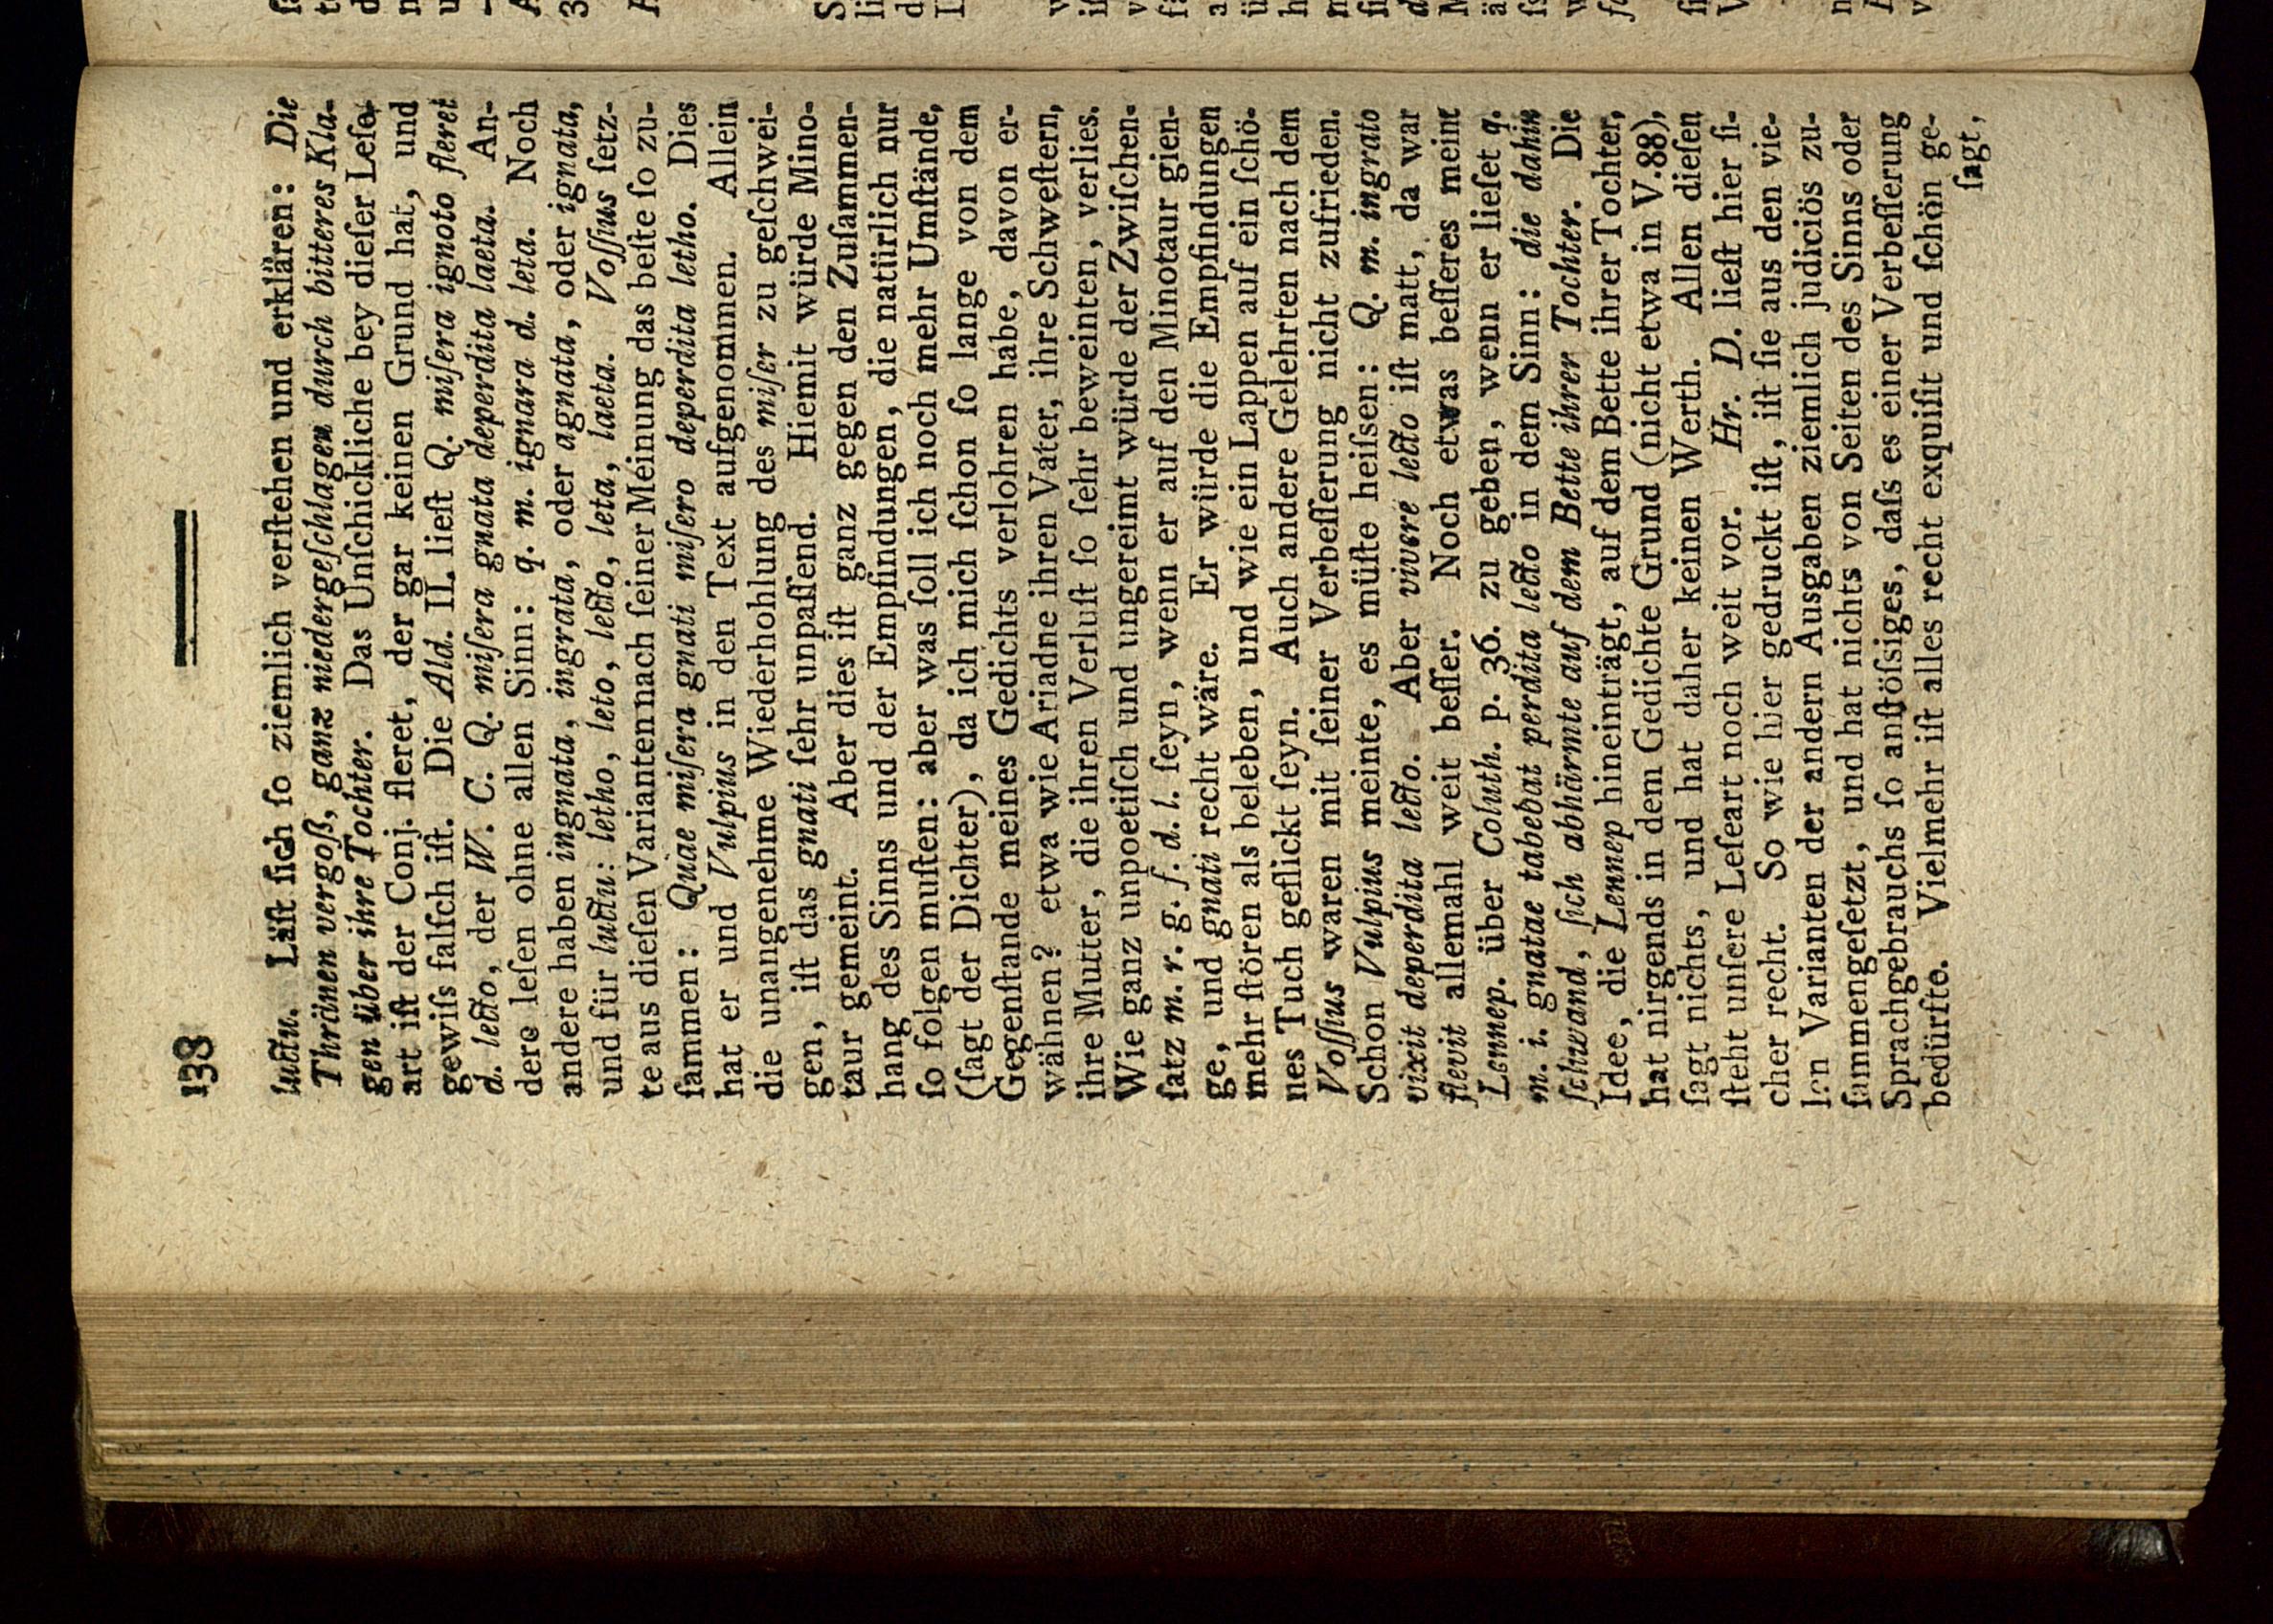 138
luctu. Läſt ſich ſo ziemlich verſtehen und erklären: Die
Thränen vergoß, ganz niedergeſchlagen durch bitteres Kla-
gen über ihre Tochter. Das Unſchickliche bey dieſer Leſe-
art iſt der Conj. fleret, der gar keinen Grund hat, und
gewiſs falſch iſt. Die Ald. II. lieſt Q. miſera ignoto fleret
d. lecto, der W. C. Q. miſera gnata deperdita laeta. An-
dere leſen ohne allen Sinn: q. m. ignara d. leta. Noch
andere haben ingnata, ingrata, oder agnata, oder ignata,
und für luctu: letho, leto, lecto, leta, laeta. Voſſius ſetz-
te aus dieſen Varianten nach ſeiner Meinung das beſte ſo zu-
ſammen: Quae miſera gnati miſero deperdita letho. Dies
hat er und Vulpius in den Text aufgenommen. Allein
die unangenehme Wiederhohlung des miſer zu geſchwei-
gen, iſt das gnati ſehr unpaſſend. Hiemit würde Mino-
taur gemeint. Aber dies iſt ganz gegen den Zuſammen-
hang des Sinns und der Empfindungen, die natürlich nur
ſo folgen muſten: aber was ſoll ich noch mehr Umſtände,
(ſagt der Dichter), da ich mich ſchon ſo lange von dem
Gegenſtande meines Gedichts verlohren habe, davon er-
wähnen? etwa wie Ariadne ihren Vater, ihre Schweſtern,
ihre Mutter, die ihren Verluſt ſo ſehr beweinten, verlies.
Wie ganz unpoetiſch und ungereimt würde der Zwiſchen-
ſatz m. r. g. f. d. l. ſeyn, wenn er auf den Minotaur gien-
ge, und gnati recht wäre. Er würde die Empfindungen
mehr ſtören als beleben, und wie ein Lappen auf ein ſchö-
nes Tuch geflickt ſeyn. Auch andere Gelehrten nach dem
Voſſius waren mit ſeiner Verbeſſerung nicht zufrieden.
Schon Vulpius meinte, es müſte heiſsen: Q. m. ingrato
vixit deperdita lecto. Aber vivere lecto iſt matt, da war
flevit allemahl weit beſſer. Noch etwas beſſeres meint
Lennep. über Coluth. p. 36. zu geben, wenn er lieſet q.
m. i. gnatae tabebat perdita lecto in dem Sinn: die dahin
ſchwand, ſich abhärmte auf dem Bette ihrer Tochter. Die
Idee, die Lennep hineinträgt, auf dem Bette ihrer Tochter,
hat nirgends in dem Gedichte Grund (nicht etwa in V.88),
ſagt nichts, und hat daher keinen Werth. Allen dieſen
ſteht unſere Leſeart noch weit vor. Hr. D. lieſt hier ſi-
cher recht. So wie hier gedruckt iſt, iſt ſie aus den vie-
len Varianten der andern Ausgaben ziemlich judiciös zu-
ſammengeſetzt, und hat nichts von Seiten des Sinns oder
Sprachgebrauchs ſo anſtöſsiges, daſs es einer Verbeſſerung
bedürfte. Vielmehr iſt alles recht exquiſit und ſchön ge-
ſagt,